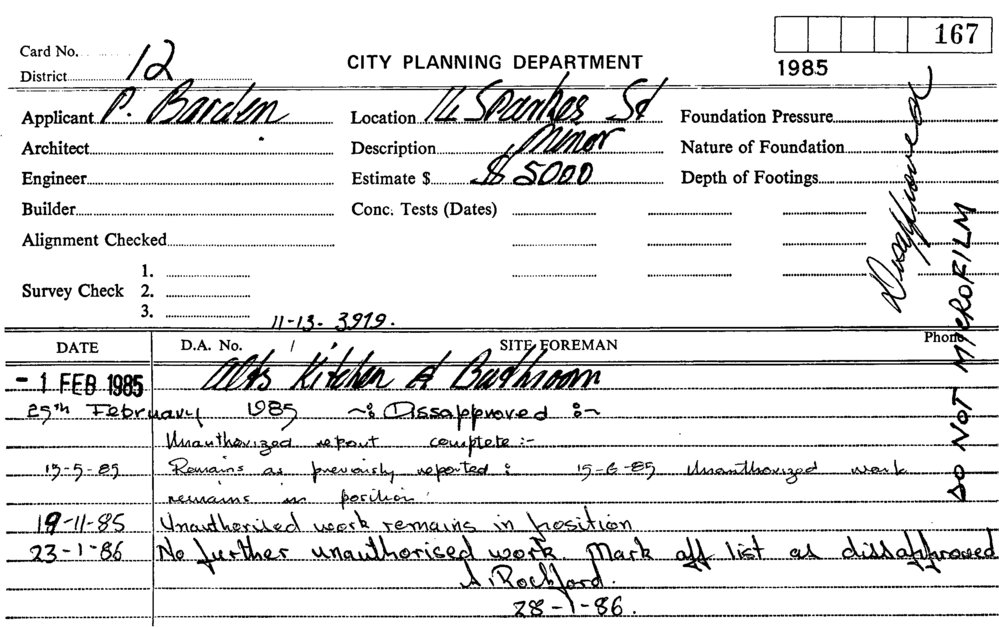 167
Card No.
District 12
CITY PLANNING DEPARTMENT
1985
Applicant P. Barden
Location 14 Sparkes St
Foundation Pressure
Architect
Description Minor
Nature of Foundation
Engineer
Estimate $ $ 5000
Depth of Footings
Builder
Conc. Tests (Dates)
Alignment Checked
Survey Check
1.
2.
3.
Dissapproved
DO NOT MICROFILM
11-13. 3919.
DATE
D.A. No. /
SITE FOREMAN
Phone
- 1 FEB 1985 Alts Kitchen & Bathroom
25th February 1985 ~: Dissapproved :~
Unauthorized report complete :-
15-5-85 Remains as previously reported : 15-6-85 Unauthorized work
remains in position
19-11-85 Unauthorised work remains in position
23-1-86 No further unauthorised work. Mark off list as dissapproved
A. Rochford.
28-1-86.